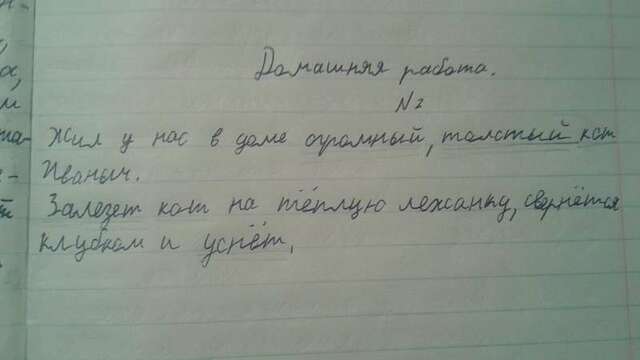 Домашняя работа.
№2
Жил у нас в доме огромный, толстый кот
Иваныч.
Залезет кот на тёплую лежанку, свернётся
клубком и уснёт.